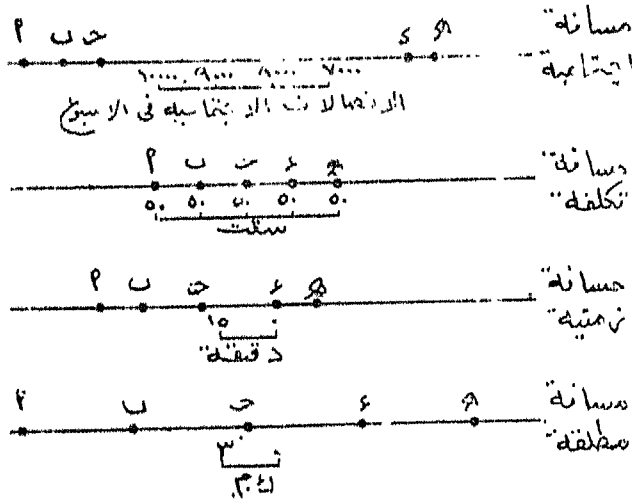 مسافة اجتماعية
أ ب ج د هـ
١٠٠٠٠ ٩٠٠٠ ٨٠٠٠ ٧٠٠٠
الاتصالات الاجتماعية فى الاسبوع
مسافة تكلفة
أ ب ج د هـ
٥٠ ٥٠ ٥٠ ٥٠ ٥٠
سنت
مسافة زمنية
أ ب ج د هـ
١٥ ٠
دقيقة
مسافة مطلقة
أ ب ج د هـ
٣٠
ك.م.